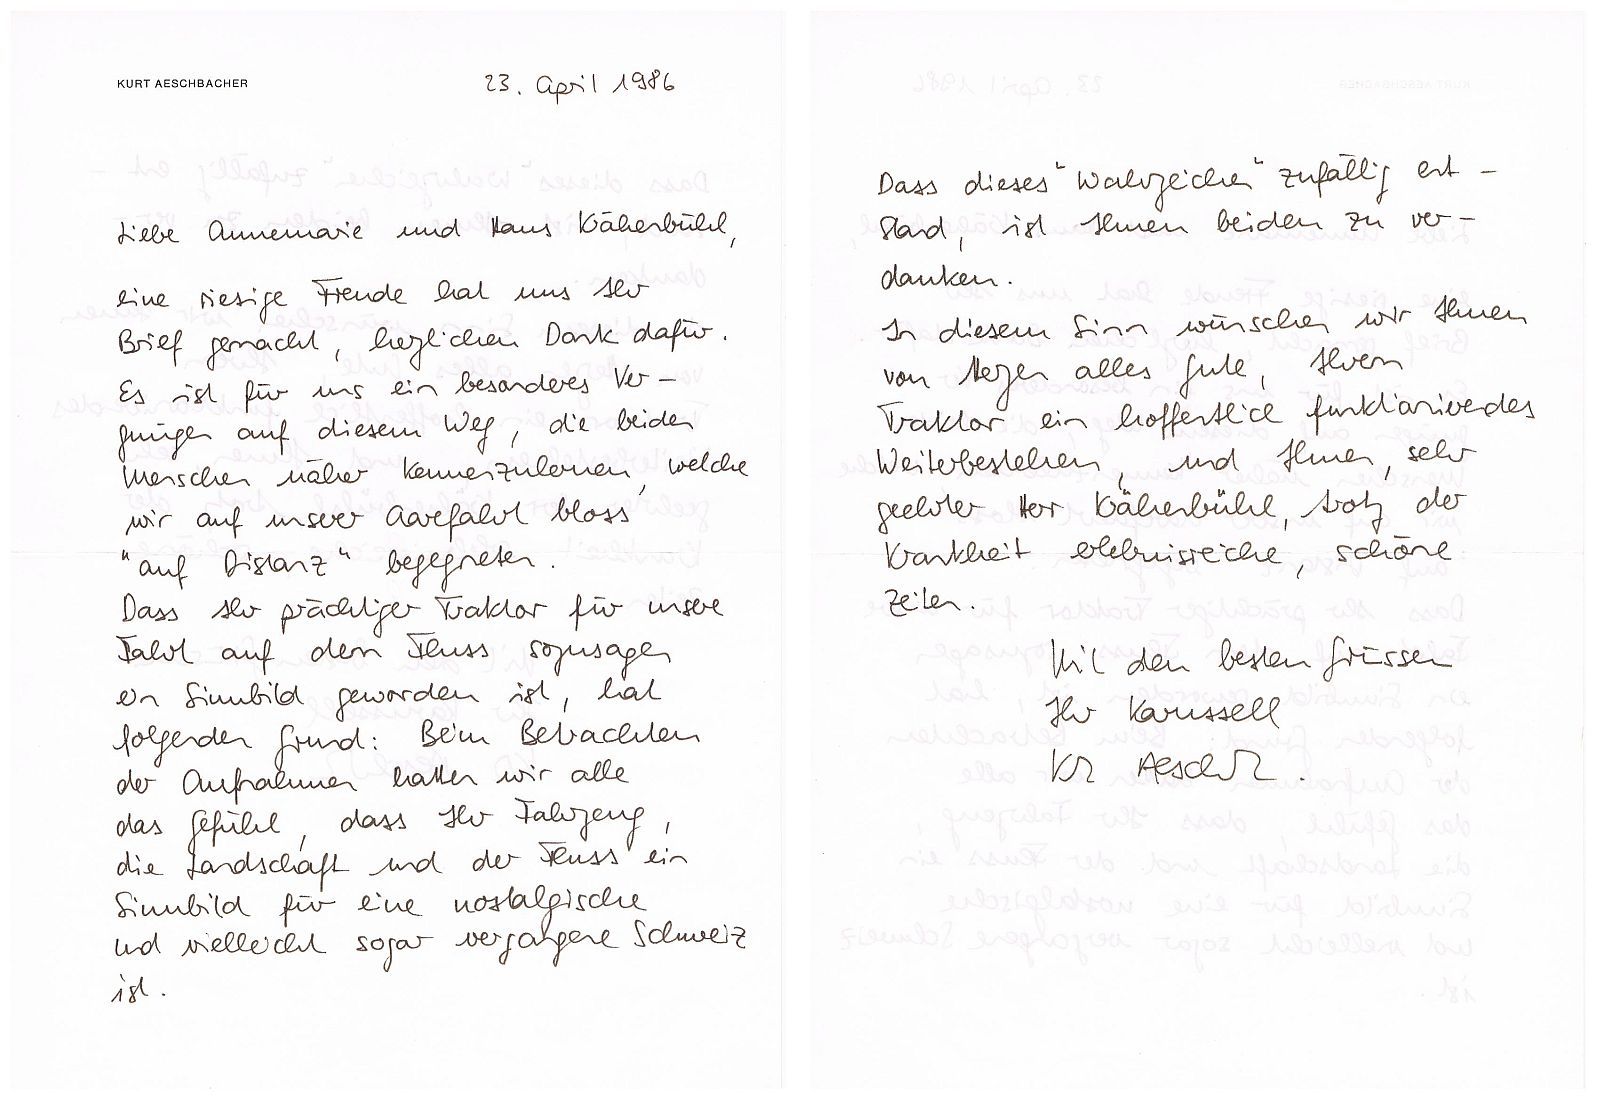 KURT AESCHBACHER
23. April 1986
Liebe Annemarie und Hans Käherbühl,
eine riesige Freude hat uns Ihr
Brief gemacht, herzlichen Dank dafür.
Es ist für uns ein besonderes Ver-
gnügen auf diesem Weg, die beiden
Menschen näher kennenzulernen, welche
wir auf unserer Aarefahrt bloss
"auf Distanz" begegneten.
Dass Ihr prächtiger Traktor für unsere
Fahrt auf dem Fluss sozusagen
ein Sinnbild geworden ist, hat
folgenden Grund: Beim Betrachten
der Aufnahmen hatten wir alle
das Gefühl, dass Ihr Fahrzeug,
die Landschaft und der Fluss ein
Sinnbild für eine nostalgische
und vielleicht sogar vergangene Schweiz
ist.
Dass dieses "Wahrzeichen" zufällig ent-
stand, ist Ihnen beiden zu ver-
danken.
In diesem Sinn wünschen wir Ihnen
von Herzen alles Gute, Ihrem
Traktor ein hoffentlich funktionierendes
Weiterbestehen, und Ihnen, sehr
geehrter Herr Käherbühl, trotz der
Krankheit erlebnisreiche, schöne
Zeiten.
Mit den besten Grüssen
Ihr Karussell
Kurt Aeschbacher.